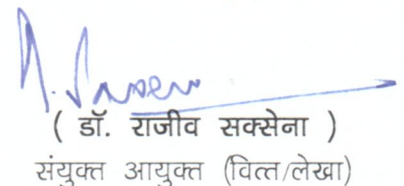 ( डॉ. राजीव सक्सेना )
संयुक्त आयुक्त (वित्त/लेखा)